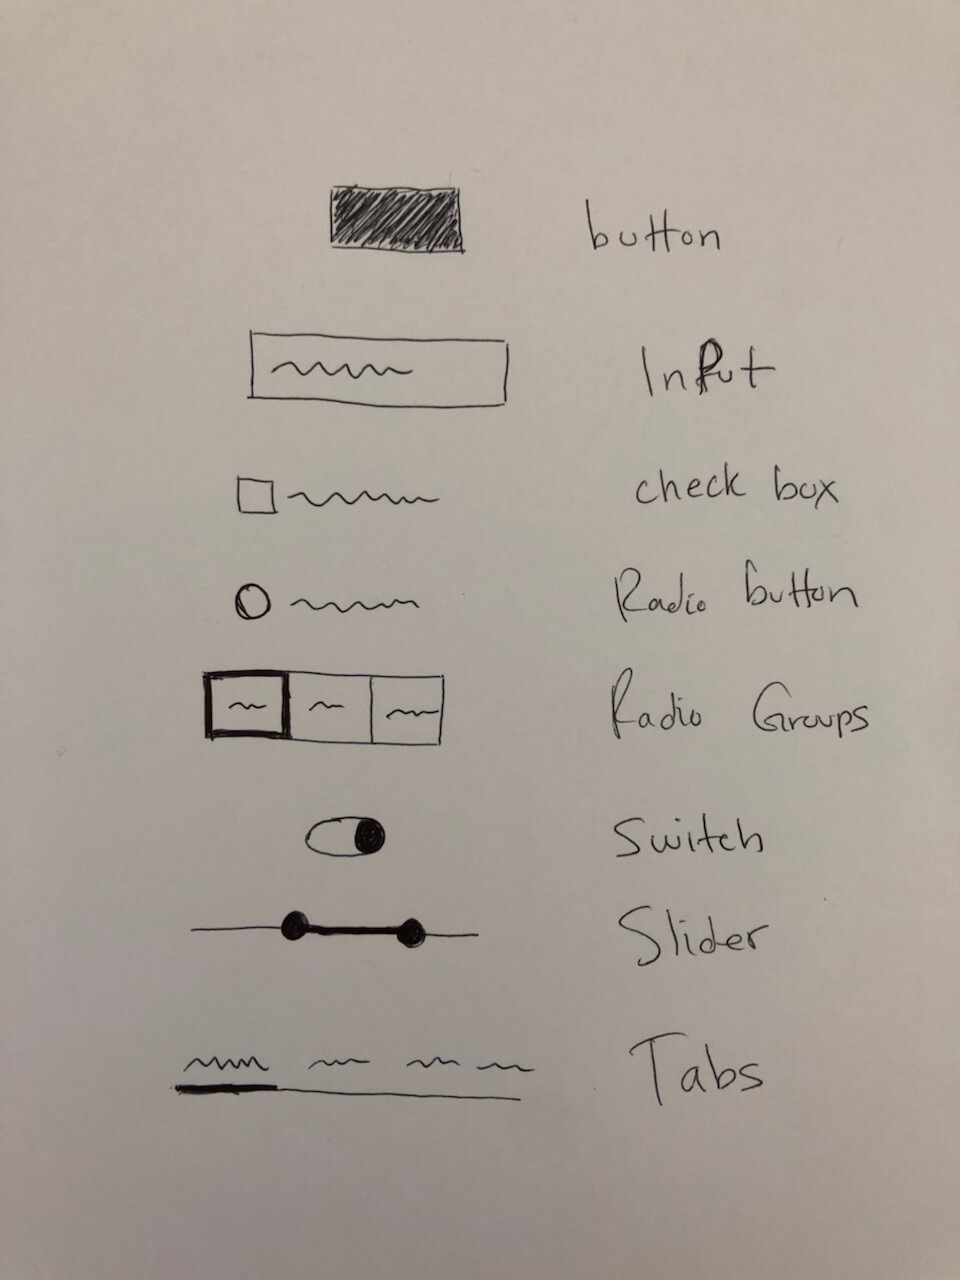 button
Input
check box
Radio button
Radio Groups
Switch
Slider
Tabs